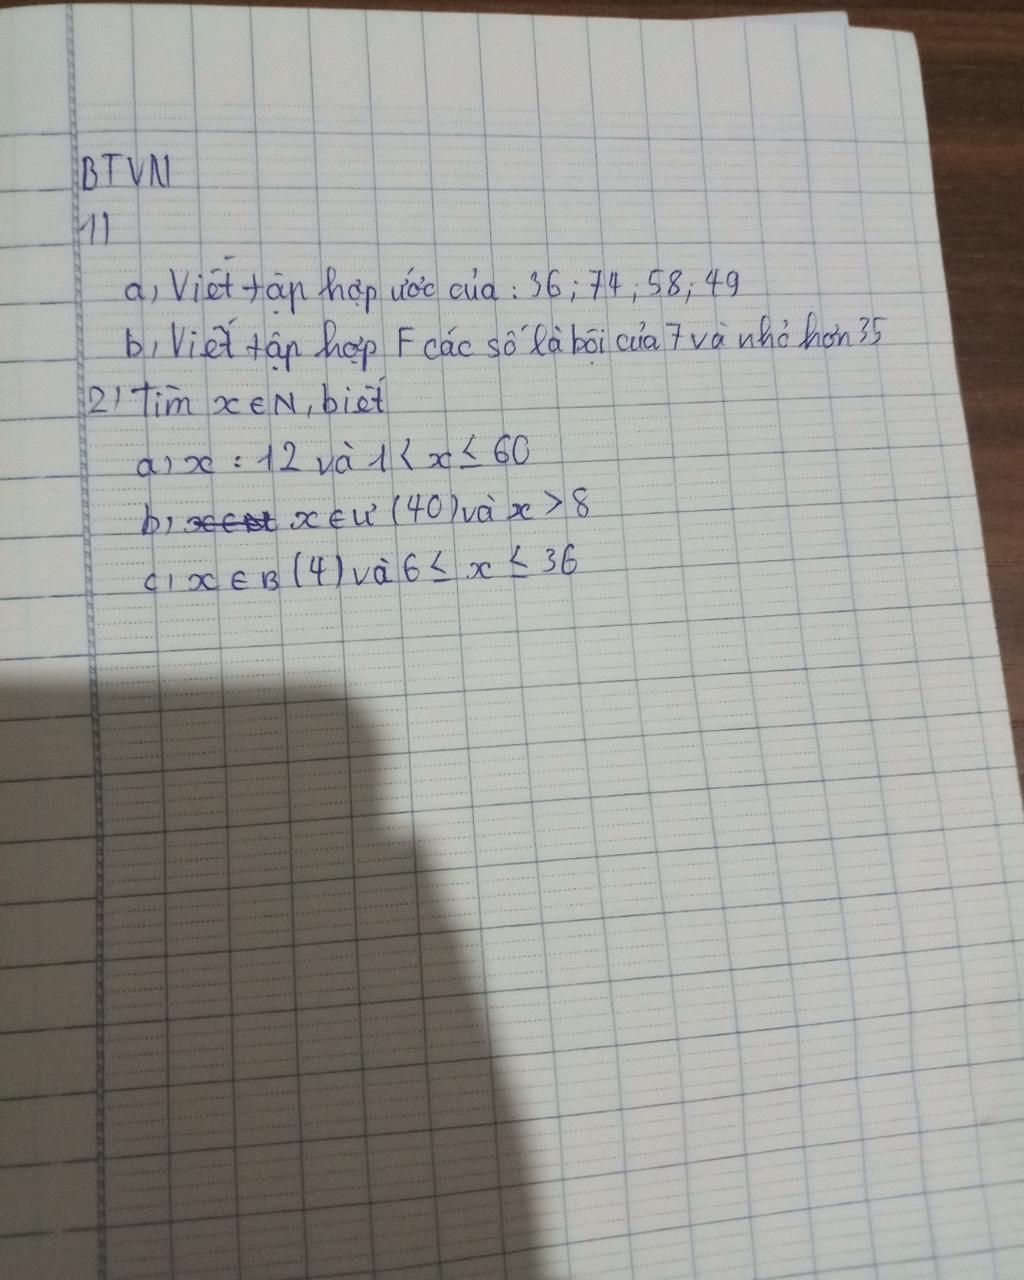 BTVN
1)
a, Viết tập hợp ước của : 36 ; 74 ; 58 ; 49
b, Viết tập hợp F các số là bội của 7 và nhỏ hơn 35
2) Tìm x ∈ N, biết
a, x : 12 và 1 < x ≤ 60
b, x ∈ Ư (40) và x > 8
c, x ∈ B (4) và 6 ≤ x ≤ 36